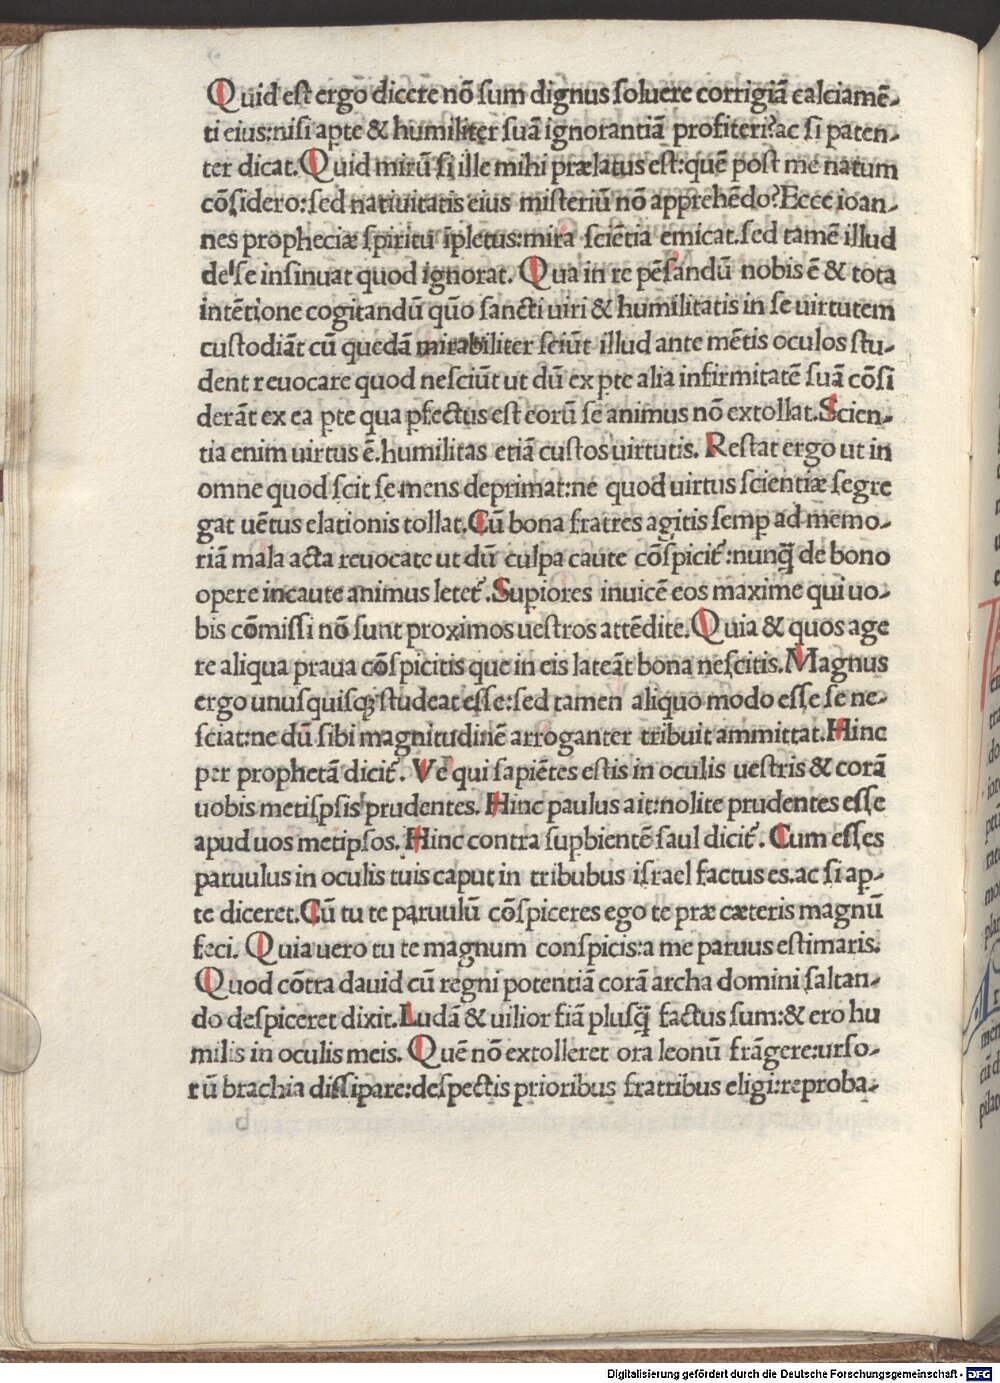 Quid est ergo dicere nõ sum dignus soluere corrigiã calciamẽ-
ti eius:nisi apte & humiliter suã ignorantiã profiteri?ac si paten-
ter dicat.Quid mirũ si ille mihi prælatus est:quẽ post me natum
cõsidero:sed natiuitatis eius misteriũ nõ apprehẽdo?Ecce ioan-
nes propheciæ spiritu ĩpletus:mira sciẽtia emicat.sed tamẽ illud
de se insinuat quod ignorat. Qua in re pẽsandũ nobis ẽ & tota
intẽtione cogitandũ qũo sancti uiri & humilitatis in se uirtutem
custodiãt cũ quedã mirabiliter sciũt illud ante mẽtis oculos stu-
dent reuocare quod nesciũt ut dũ ex pte alia infirmitatẽ suã cõsi
derãt ex ea pte qua pfectus est eorũ se animus nõ extollat.Scien-
tia enim uirtus ẽ.humilitas etiã custos uirtutis. Restat ergo ut in
omne quod scit se mens deprimat:ne quod uirtus scientiæ segre
gat uẽtus elationis tollat.Cũ bona fratres agitis semp ad memo-
riã mala acta reuocate ut dũ culpa caute cõspicit̃:nunq̃ de bono
opere incaute animus letet̃.Supiores inuicẽ eos maxime qui uo-
bis cõmissi nõ sunt proximos uestros attẽdite.Quia & quos age
re aliqua praua cõspicitis que in eis lateãt bona nescitis.Magnus
ergo unusquisqꝫ studeat esse:sed tamen aliquo modo esse se ne-
sciat:ne dũ sibi magnitudinẽ arroganter tribuit ammittat.Hinc
per prophetã dicit̃. Ve qui sapiẽtes estis in oculis uestris & corã
uobis metipsis prudentes. Hinc paulus ait:nolite prudentes esse
apud uos metipsos. Hinc contra supbientẽ saul dicit̃. Cum esses
paruulus in oculis tuis caput in tribubus israel factus es.ac si ap-
te diceret.Cũ tu te paruulũ cõspiceres ego te præ cæteris magnũ
feci. Quia uero tu te magnum conspicis:a me paruus estimaris.
Quod cõtra dauid cũ regni potentiã corã archa domini saltan-
do despiceret dixit.Ludã & uilior fiã plusq̃ factus sum:& ero hu
milis in oculis meis. Quẽ nõ extolleret ora leonũ frãgere:urso-
rũ brachia dissipare:despectis prioribus fratribus eligi:reproba-
Digitalisierung gefördert durch die Deutsche Forschungsgemeinschaft - DFG